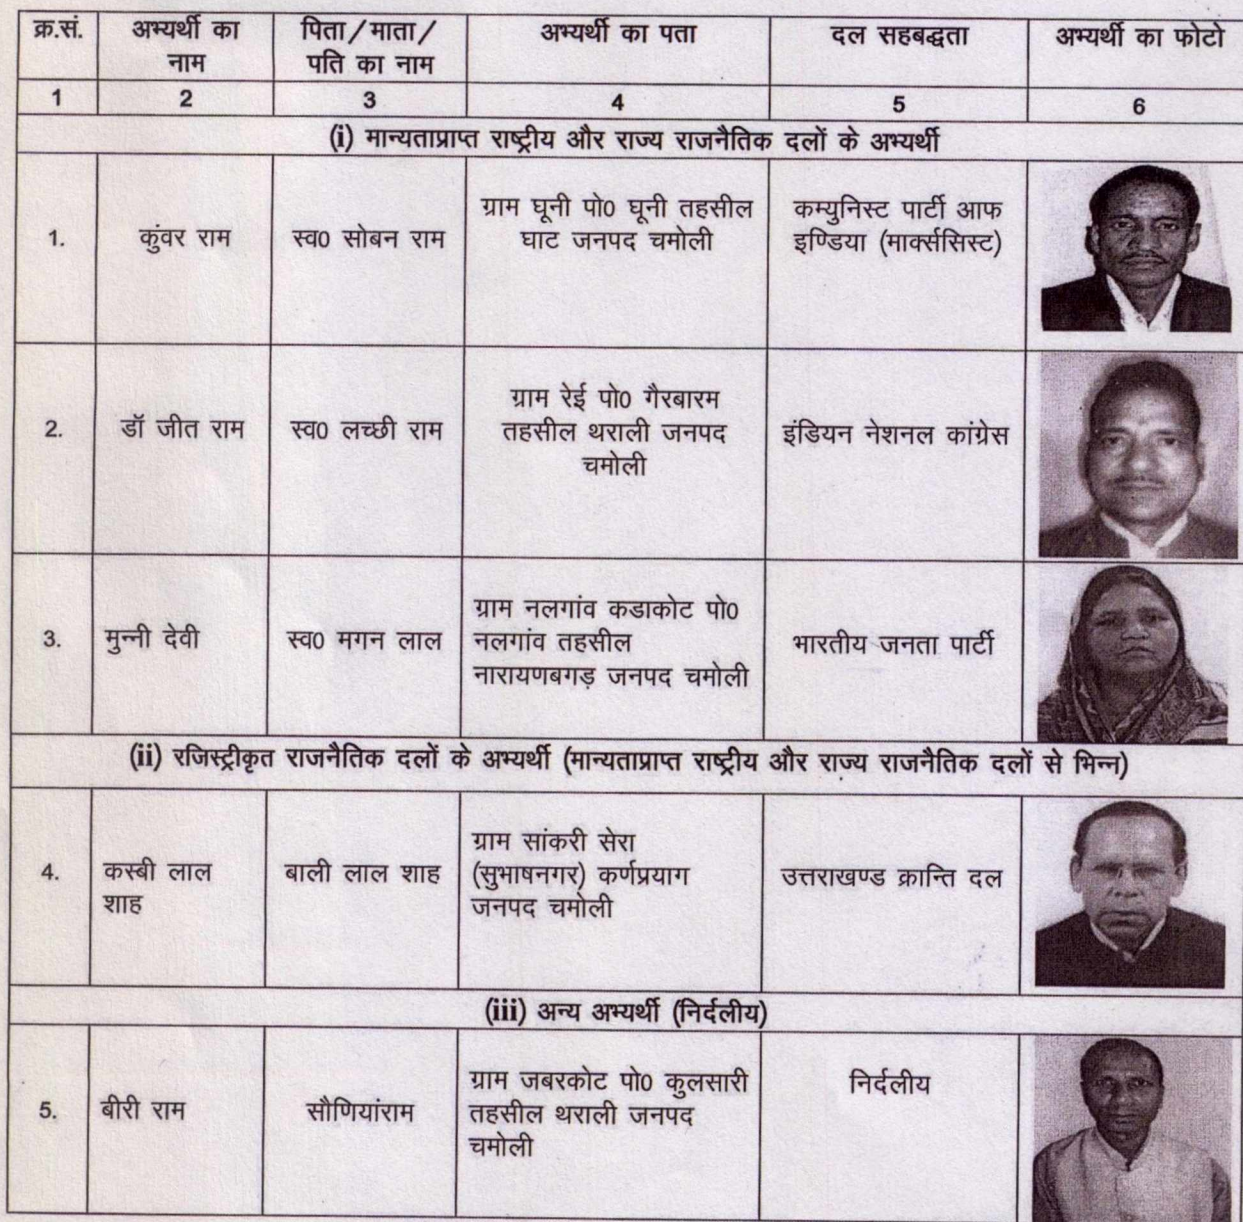 क्र.सं. अभ्यर्थी का पिता/माता/ अभ्यर्थी का पता दल सहबद्धता अभ्यर्थी का फोटो
नाम पति का नाम
1 2 3 4 5 6
(i) मान्यताप्राप्त राष्ट्रीय और राज्य राजनैतिक दलों के अभ्यर्थी
1. कुंवर राम स्व0 सोबन राम
ग्राम घूनी पो0 घूनी तहसील
घाट जनपद चमोली
कम्युनिस्ट पार्टी आफ
इण्डिया (मार्क्ससिस्ट)
2. डॉ जीत राम स्व0 लच्छी राम
ग्राम रेई पो0 गैरबारम
तहसील थराली जनपद
चमोली
इंडियन नेशनल कांग्रेस
3. मुन्नी देवी स्व0 मगन लाल
ग्राम नलगांव कडाकोट पो0
नलगांव तहसील
नारायणबगड़ जनपद चमोली
भारतीय जनता पार्टी
(ii) रजिस्ट्रीकृत राजनैतिक दलों के अभ्यर्थी (मान्यताप्राप्त राष्ट्रीय और राज्य राजनैतिक दलों से भिन्न)
4. कस्बी लाल
शाह
बाली लाल शाह
ग्राम सांकरी सेरा
(सुभाषनगर) कर्णप्रयाग
जनपद चमोली
उत्तराखण्ड क्रान्ति दल
(iii) अन्य अभ्यर्थी (निर्दलीय)
5. बीरी राम सौणियांराम
ग्राम जबरकोट पो0 कुलसारी
तहसील थराली जनपद
चमोली
निर्दलीय